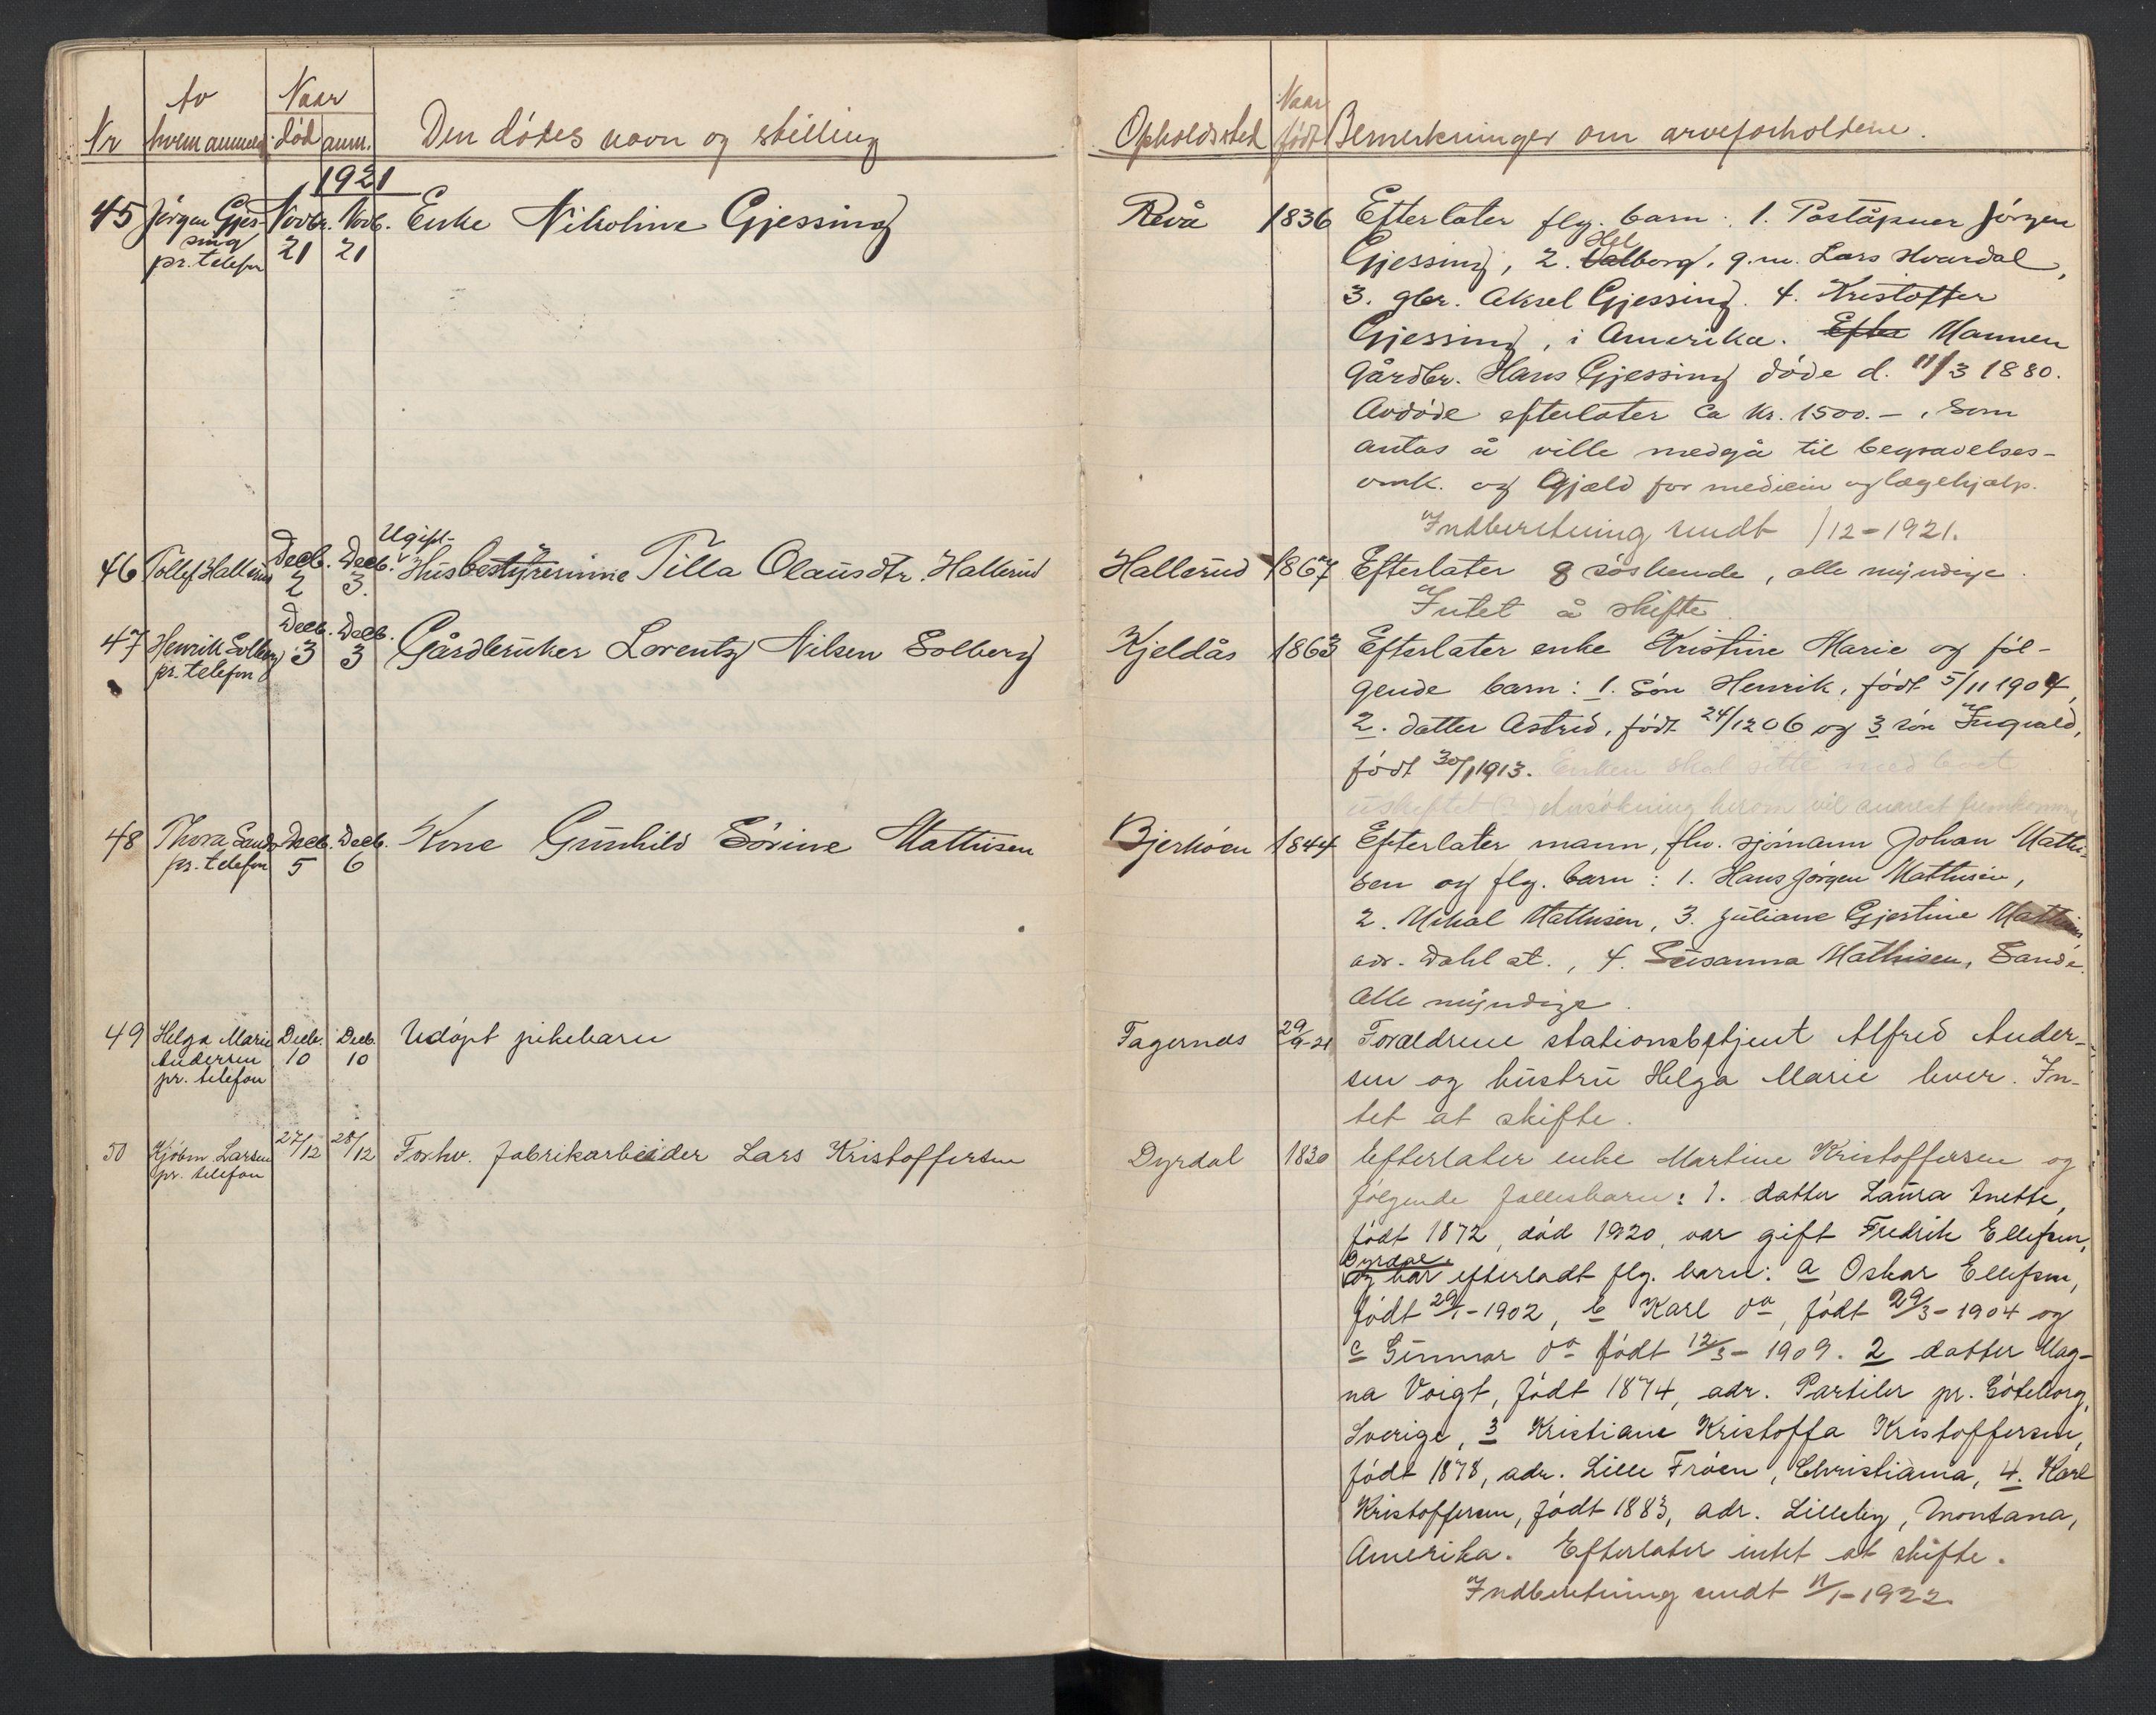 Av
Nr hvem anmeldt
Naar
død anm.
Den dødes navn og stilling
Opholdssted
Naar født
Bemerkninger om arveforholdene.
1921
45 Jörgen Gjes- Novbr. Novb. Enke Nikoline Gjessing
sing 21 21
pr. telefon
Revå 1836 Efterlater flg. barn: 1. Poståpner Jörgen
Hel
Gjessing, 2. Valborg, g.m. Lars Hvardal,
3. gbr. Aksel Gjessing. 4. Kristoffer
Gjessing, i Amerika. Efter Mannen
Gårdbr. Hans Gjessing döde d. 11/3 1880.
Avdöde efterlater ca kr. 1500.-, som
antas å ville medgå til begravelses-
omk. og Gjæld for medicin og lægehjælp.
Indberetning sendt /12-1921.
Ugift
46 Tollef Hallerud Decb. Decb. Husbestyrerinne Tilla Olausdtr. Hallerud
2 3.
Hallerud 1867 Efterlater 8 söskende, alle myndige.
Intet å skifte.
47 Henrik Solberg Decb. Decb. Gårdbruker Lorentz Nilsen Solberg
pr. telefon 3 3
Kjeldås 1863 Efterlater enke Kristine Marie og föl-
gende barn: 1. Sön Henrik, födt 5/11 1904,
2. datter Astrid, födt 24/12 06 og 3 sön Ingvald,
födt 30/1 1913. Enken skal sitte med boet
uskiftet (?) Ansökning herom vil senest fremkomme
48 Thora Sand Decb. Decb. Kone Gunhild Sörine Mathisen
pr. telefon 5 6
Bjerköen 1844 Efterlater mann, fhv. sjömann Johan Mathi-
sen og flg. barn: 1. Hans Jörgen Mathisen,
2. Mikal Mathisen, 3. Juliane Gjertine Mathisen,
adr. Dahl st., 4. Susanna Mathisen, Sande.
Alle myndige.
49 Helga Marie Decb. Decb. Udöpt pikebarn
Andersen 10 10
pr. telefon
Fagernes 29/9-21 Forældrene stationsbetjent Alfred Ander-
sen og hustru Helga Marie lever. In-
tet at skifte.
50 Kjöbm. Larsen 27/12 28/12 Forhv. fabrikarbeider Lars Kristoffersen
pr. telefon
Dyrdal 1830 Efterlater enke Martine Kristoffersen og
følgende fællesbarn: 1. datter Laura Anette,
födt 1872, död 1920, var gift Fredrik Ellefsen,
Dyrdal.
og har efterladt flg. barn: a Oskar Ellefsen,
födt 29/1-1902, b Karl do, födt 29/3-1904 og
c Gunnar do födt 12/3-1909. 2 datter Mag-
na Voigt, födt 1874, adr. Partiler pr. Göteborg,
Sverige, 3 Kristiane Kristoffa Kristoffersen,
födt 1878, adr. Lille Fröen, Christiania, 4. Karl
Kristoffersen, födt 1883, adr. Lilleby, Montana,
Amerika. Efterlater intet at skifte.
Indberetning sendt 11/1-1922.